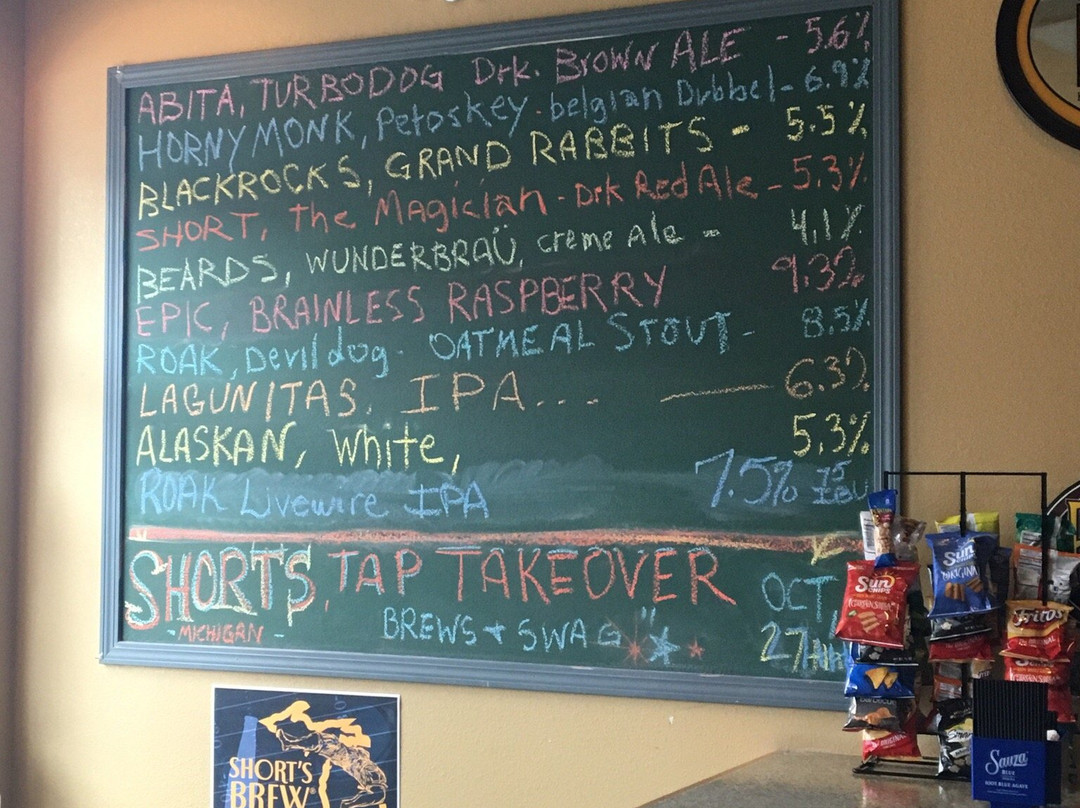 ABITA, TURBODOG Drk. BROWN ALE - 5.6%
HORNY MONK, Petoskey - belgian Dubbel - 6.9%
BLACKROCKS, GRAND RABBITS - 5.5%
SHORT, The Magician - Drk Red Ale - 5.3%
BEARDS, WUNDERBRAÜ, creme Ale - 4.1%
EPIC, BRAINLESS RASPBERRY 9.3%
ROAK, Devil dog - OATMEAL STOUT - 8.5%
LAGUNITAS, IPA.... —— 6.3%
ALASKAN, White, 5.3%
ROAK Livewire IPA 7.5% 75 IBU
SHORTS, TAP TAKEOVER OCT
- MICHIGAN - BREWS + SWAG 27th
SHORT'S
BREW
Sun
Sun
Fritos
Sauza
BLUE